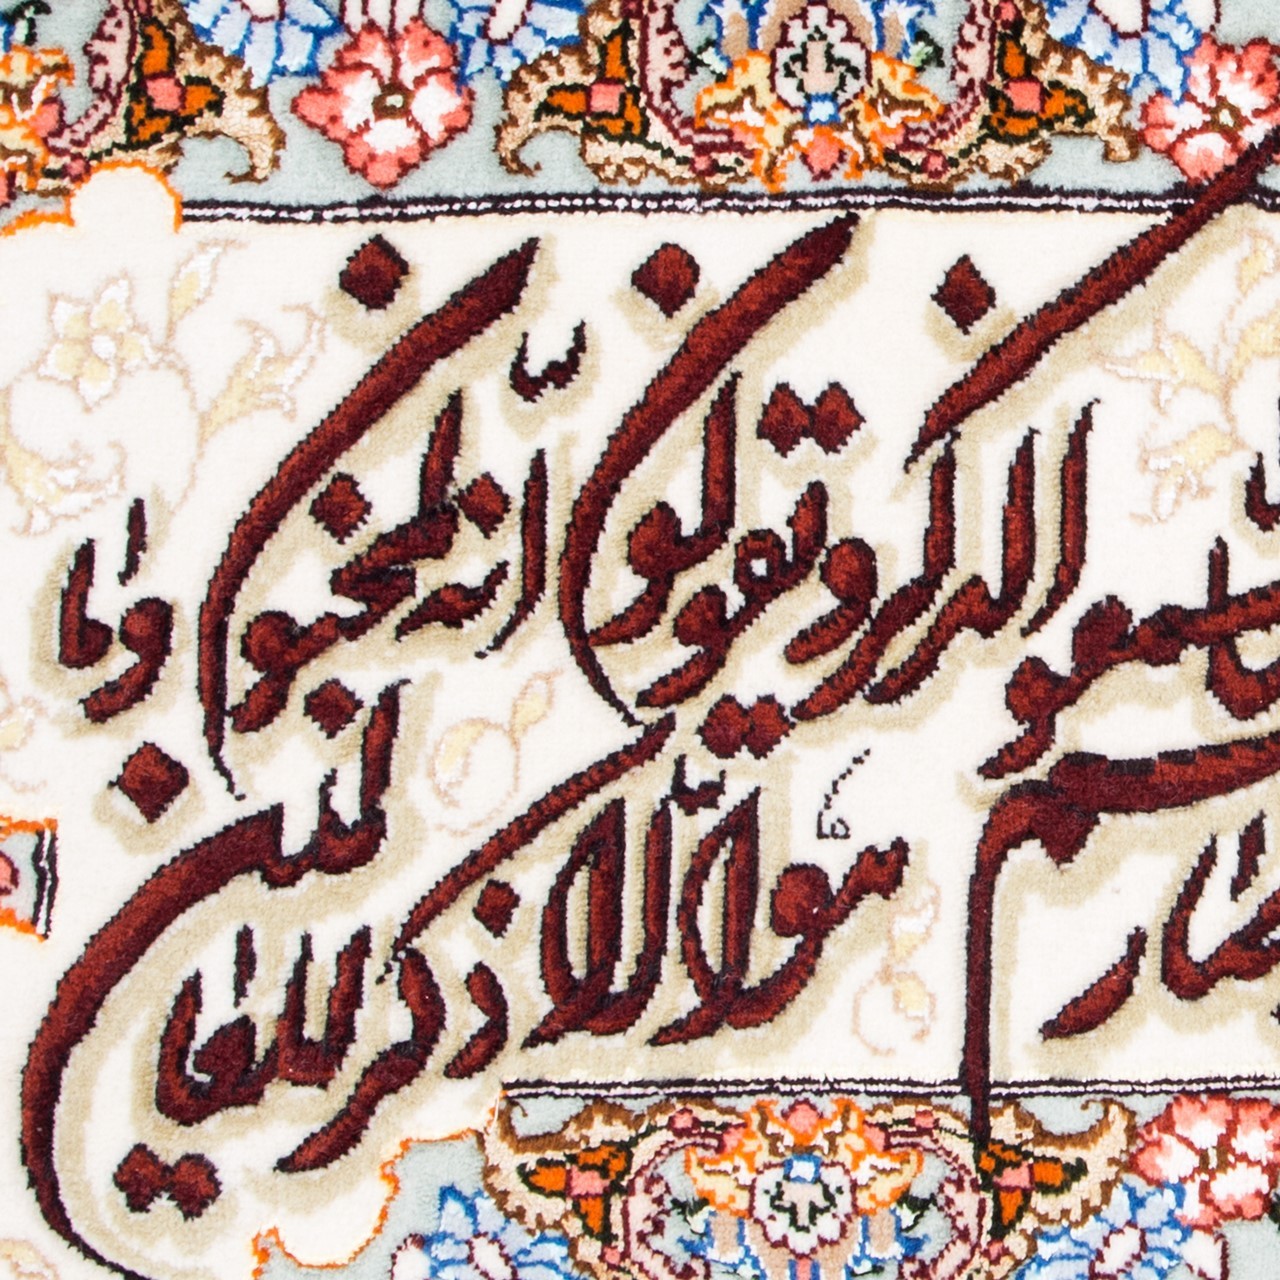 سمعوا الذکر و یقولون انّه لمجنون وما
هو الّا ذکر للعٰالمین